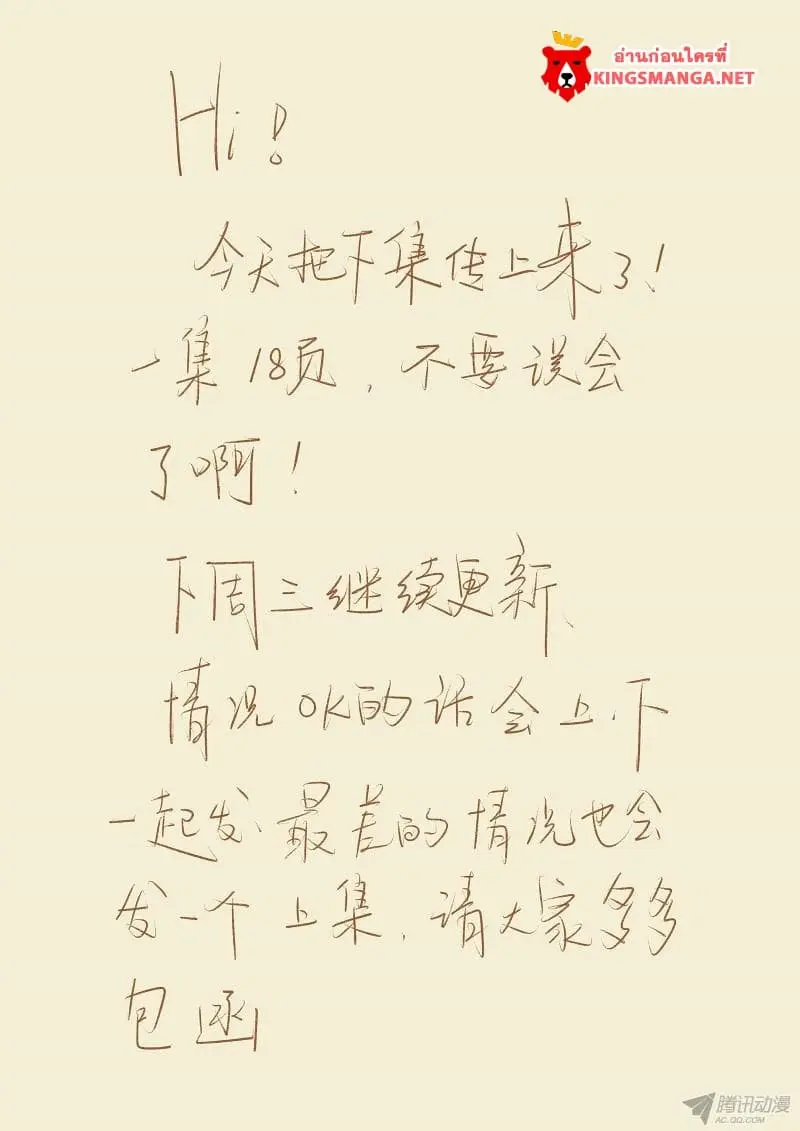 อ่านก่อนใครที่
KINGSMANGA.NET
Hi!
今天把下集传上来了!
一集18页,不要误会
了啊!
下周三继续更新、
情况OK的话会上、下
一起发、最差的情况也会
发一个上集,请大家多多
包涵
腾讯动漫
AC.QQ.COM